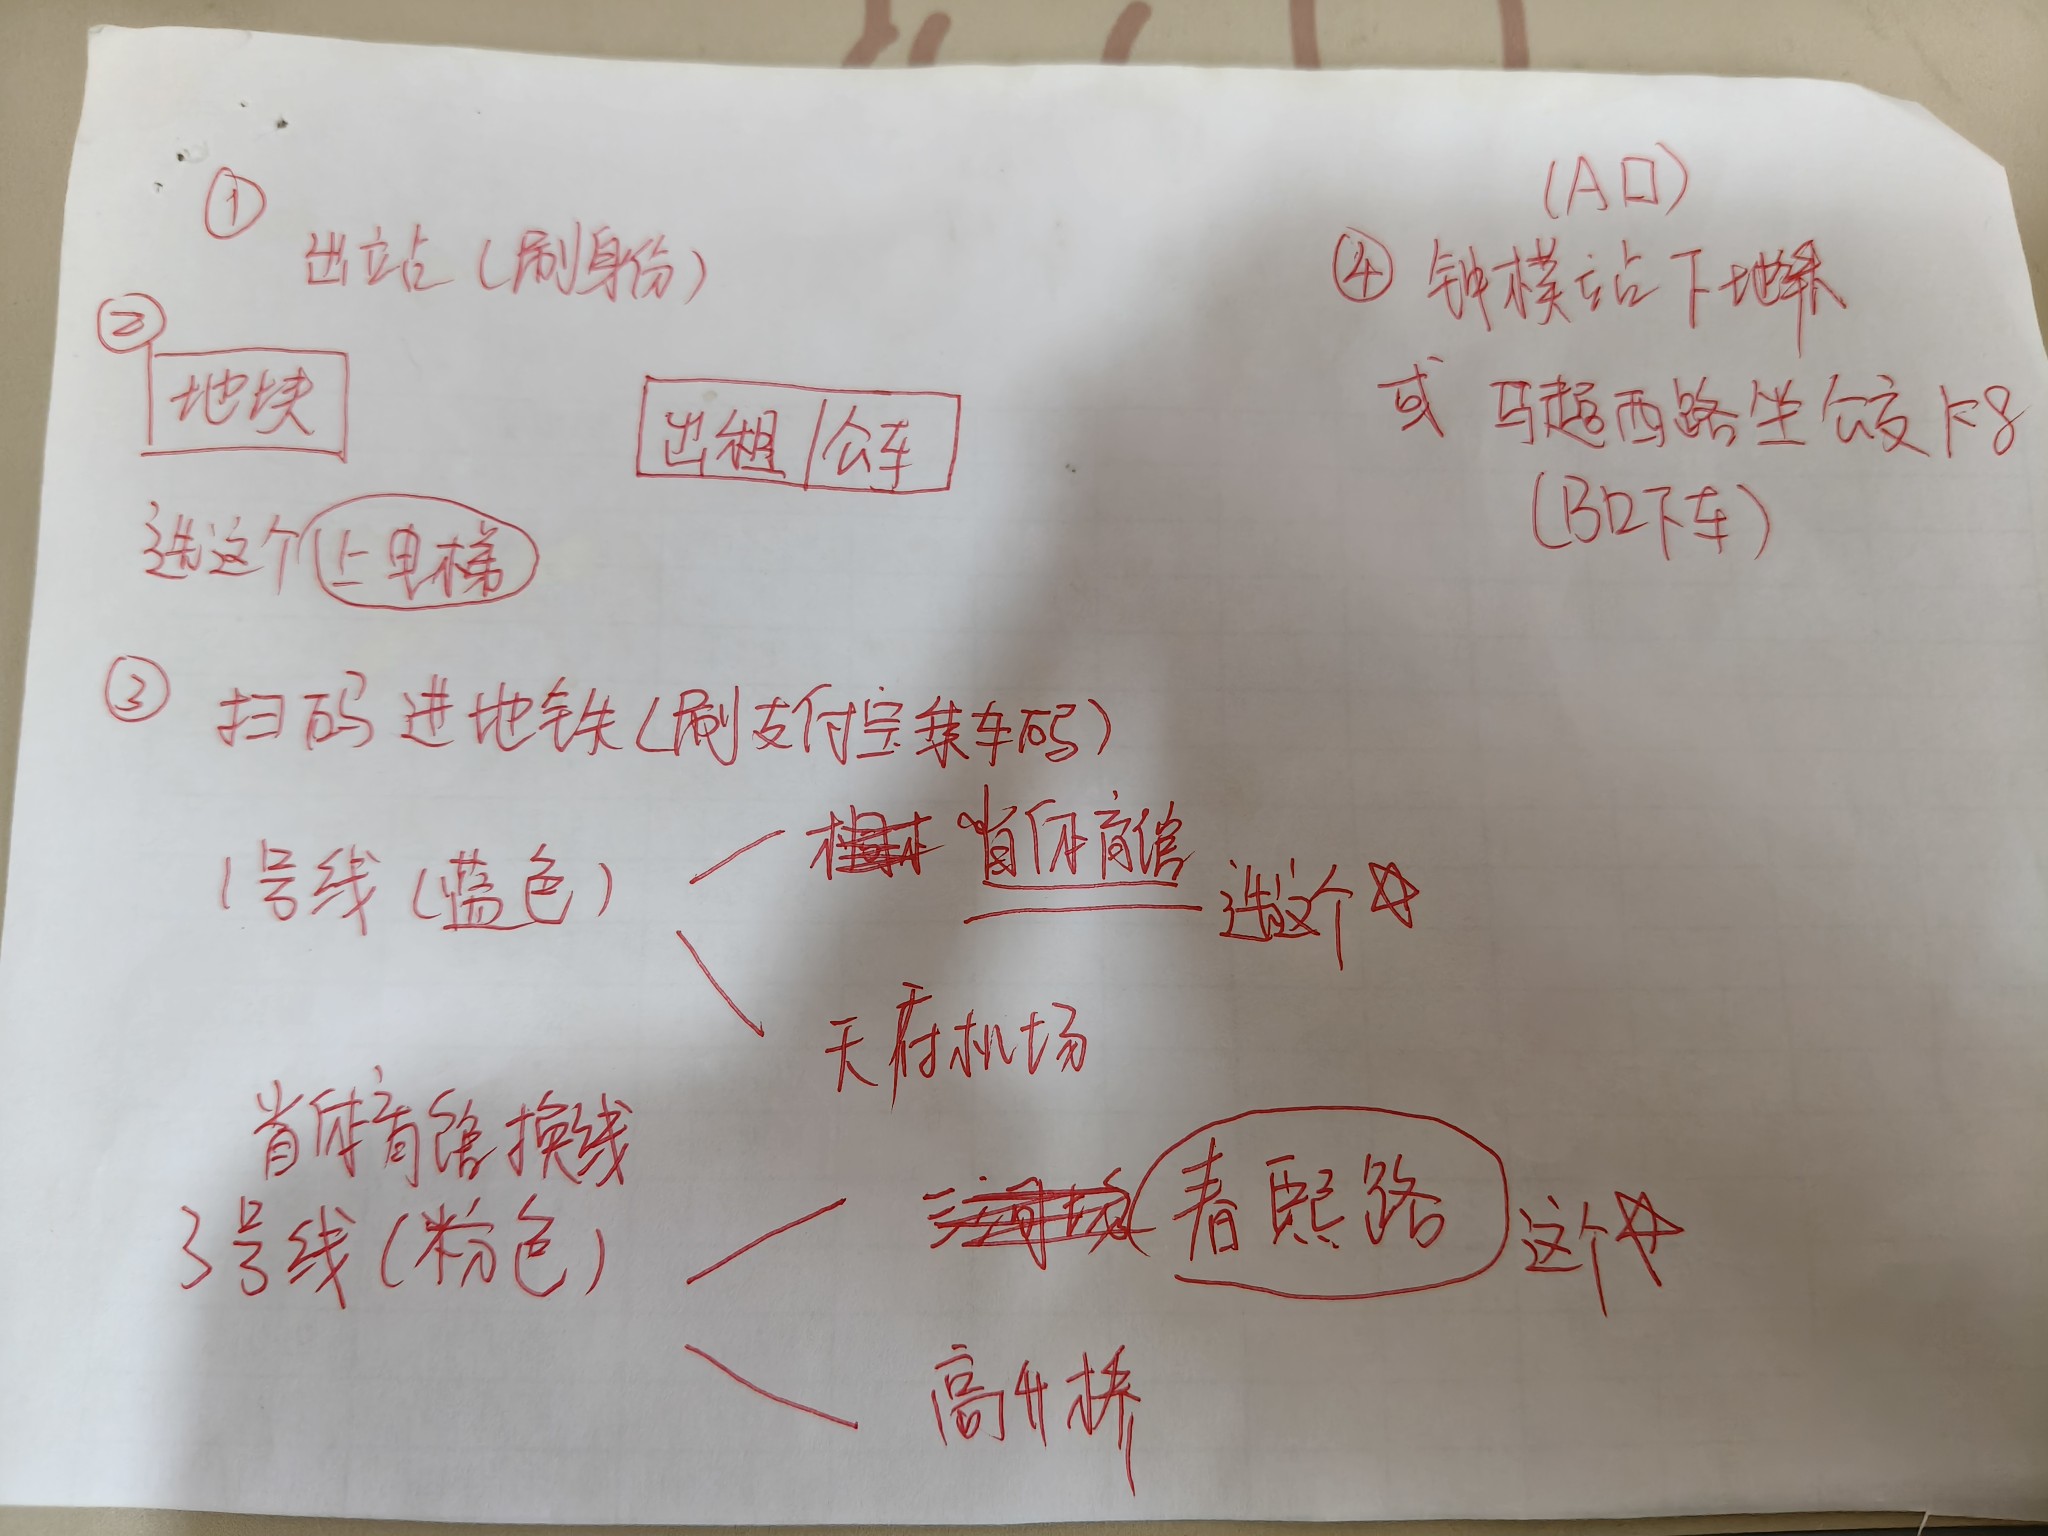 ①
出站(刷身份)
②
地块
出租|公车
选这个 上电梯
③ 扫码 进地铁(刷支付宝乘车码)
1号线(蓝色)
省体育馆 选这个☆
天府机场
省体育馆换线
3号线(粉色)
春熙路 这个☆
高升桥
(A口)
④ 钟楼站下地铁
或 马超西路坐公交卡8
(B口下车)